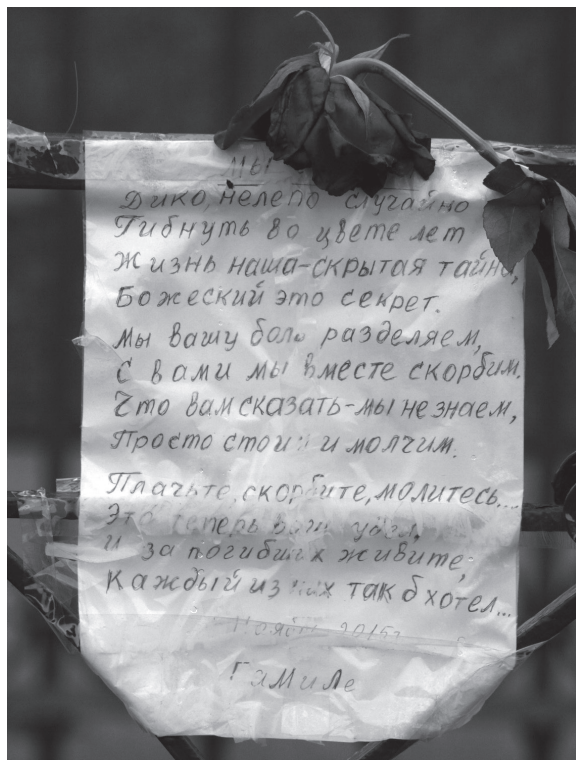 МЫ
Дико, нелепо случайно
Гибнуть во цвете лет
Жизнь наша-скрытая тайна,
Божеский это секрет.
Мы вашу боль разделяем,
С вами мы вместе скорбим.
Что вам сказать-мы не знаем,
Просто стоим и молчим.
Плачьте, скорбите, молитесь...
Это теперь ваш удел,
и за погибших живите,
Каждый из них так б хотел...
Ноябрь 2015г